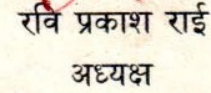 रवि प्रकाश राई
अध्यक्ष